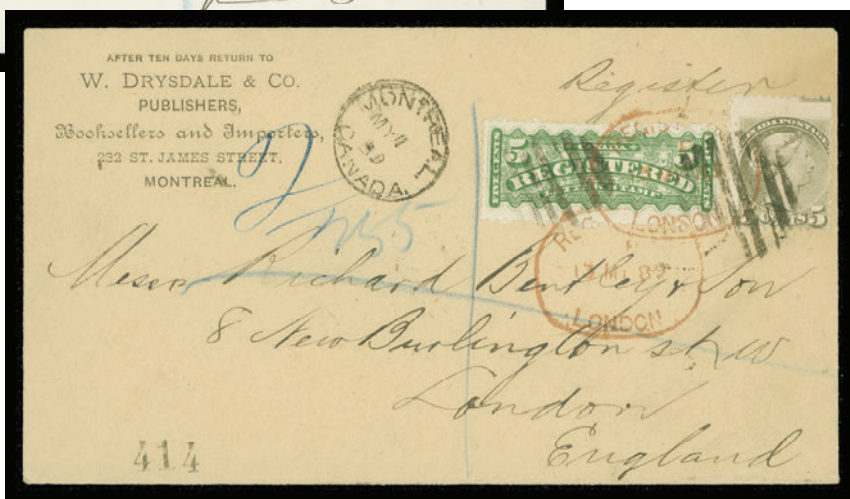 AFTER TEN DAYS RETURN TO
W. DRYSDALE & CO.
PUBLISHERS,
Booksellers and Importers,
232 ST. JAMES STREET,
MONTREAL.
MONTREAL
MY 4
89
CANADA.
Register
5
REGISTERED
5 CENTS 5
LONDON
13 MY 89
LONDON
Messrs Richard Bentley & Son
8 New Burlington st W
London
England
414